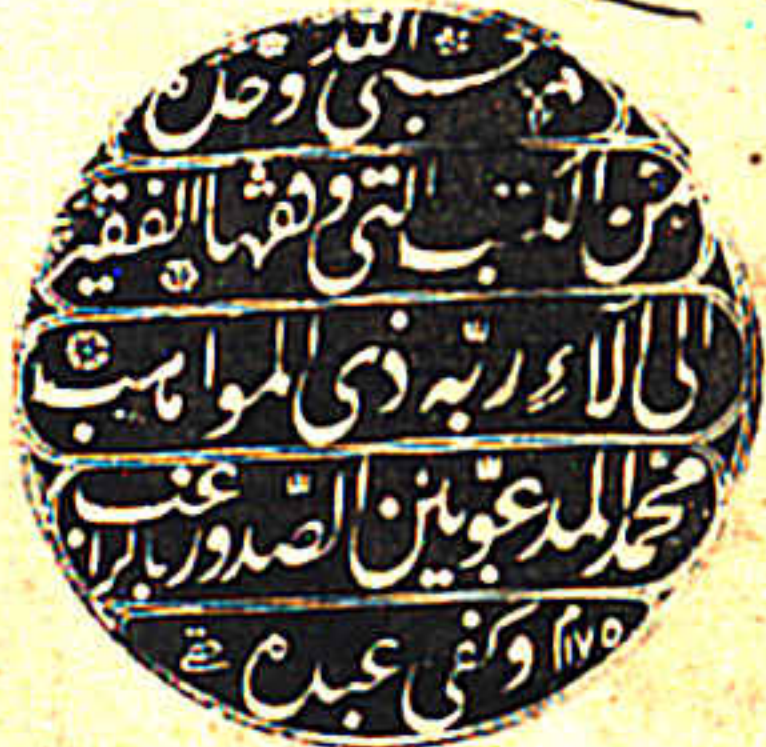 حسبى الله وحده
من الكتب التى وقفها الفقير
الى آلاءِ ربّه ذى المواهب
محمد المدعوّ بين الصّدور بالراغب
وكفى عبده